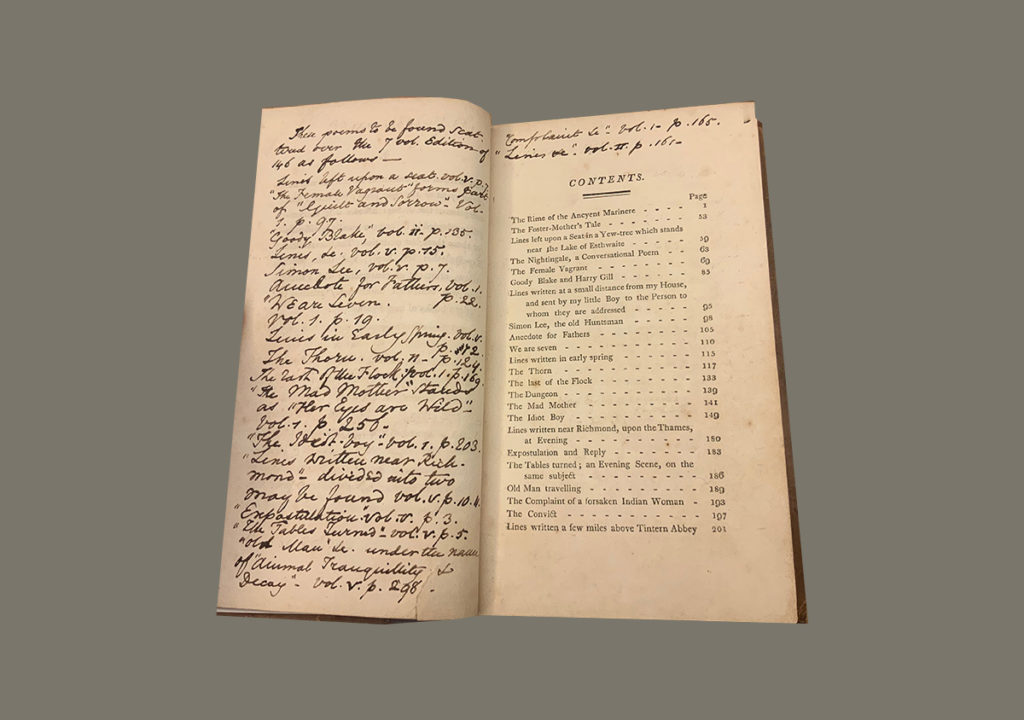 These poems to be found scat-
tered over the 7 vol. Edition of
146 as follows —
Lines left upon a seat. vol. v. p. 7.
"The Female Vagrant" forms part
of "Guilt and Sorrow" - Vol.
1. p. 97.
"Goody Blake" vol. ii. p. 135.
Lines, &c. vol. v. p. 15.
Simon Lee, vol. v. p. 7.
Anecdote for Fathers, vol. 1.
p. 22.
"We are Seven.
Vol. 1. p. 19.
Lines in Early Spring. vol. v.
p. 12.
The Thorn. vol. II - p. 124.
The Last of the Flock. vol. 1. p. 169.
"The Mad Mother" stands
as "Her Eyes are Wild" -
vol. 1. p. 256 -
"The Idiot boy" - vol. 1. p. 203.
"Lines written near Rich-
mond" - divided into two
may be found vol. v. p. 10. 4.
"Expostulation" vol. v. p. 3.
"The Tables Turned" - vol. v. p. 5.
"Old Man &c. under the name
of "Animal Tranquillity &
Decay" - vol. v. p. 298 -
"Complaint &c" - vol. 1 - p. 165.
"Lines &c". vol. II. p. 161 -
CONTENTS.
Page
The Rime of the Ancyent Marinere - - - - 1
The Foster-Mother's Tale - - - - - 53
Lines left upon a Seat in a Yew-tree which stands
near the Lake of Esthwaite - - - - 59
The Nightingale, a Conversational Poem - - 63
The Female Vagrant - - - - - - 69
Goody Blake and Harry Gill - - - - - 85
Lines written at a small distance from my House,
and sent by my little Boy to the Person to
whom they are addressed - - - - - 95
Simon Lee, the old Huntsman - - - - - 98
Anecdote for Fathers - - - - - - 105
We are seven - - - - - - - - 110
Lines written in early spring - - - - - 115
The Thorn - - - - - - - - 117
The last of the Flock - - - - - - 133
The Dungeon - - - - - - - - 139
The Mad Mother - - - - - - - 141
The Idiot Boy - - - - - - - - 149
Lines written near Richmond, upon the Thames,
at Evening - - - - - - - - 180
Expostulation and Reply - - - - - - 183
The Tables turned; an Evening Scene, on the
same subject - - - - - - - - 186
Old Man travelling - - - - - - - 189
The Complaint of a forsaken Indian Woman - 193
The Convict - - - - - - - - 197
Lines written a few miles above Tintern Abbey 201